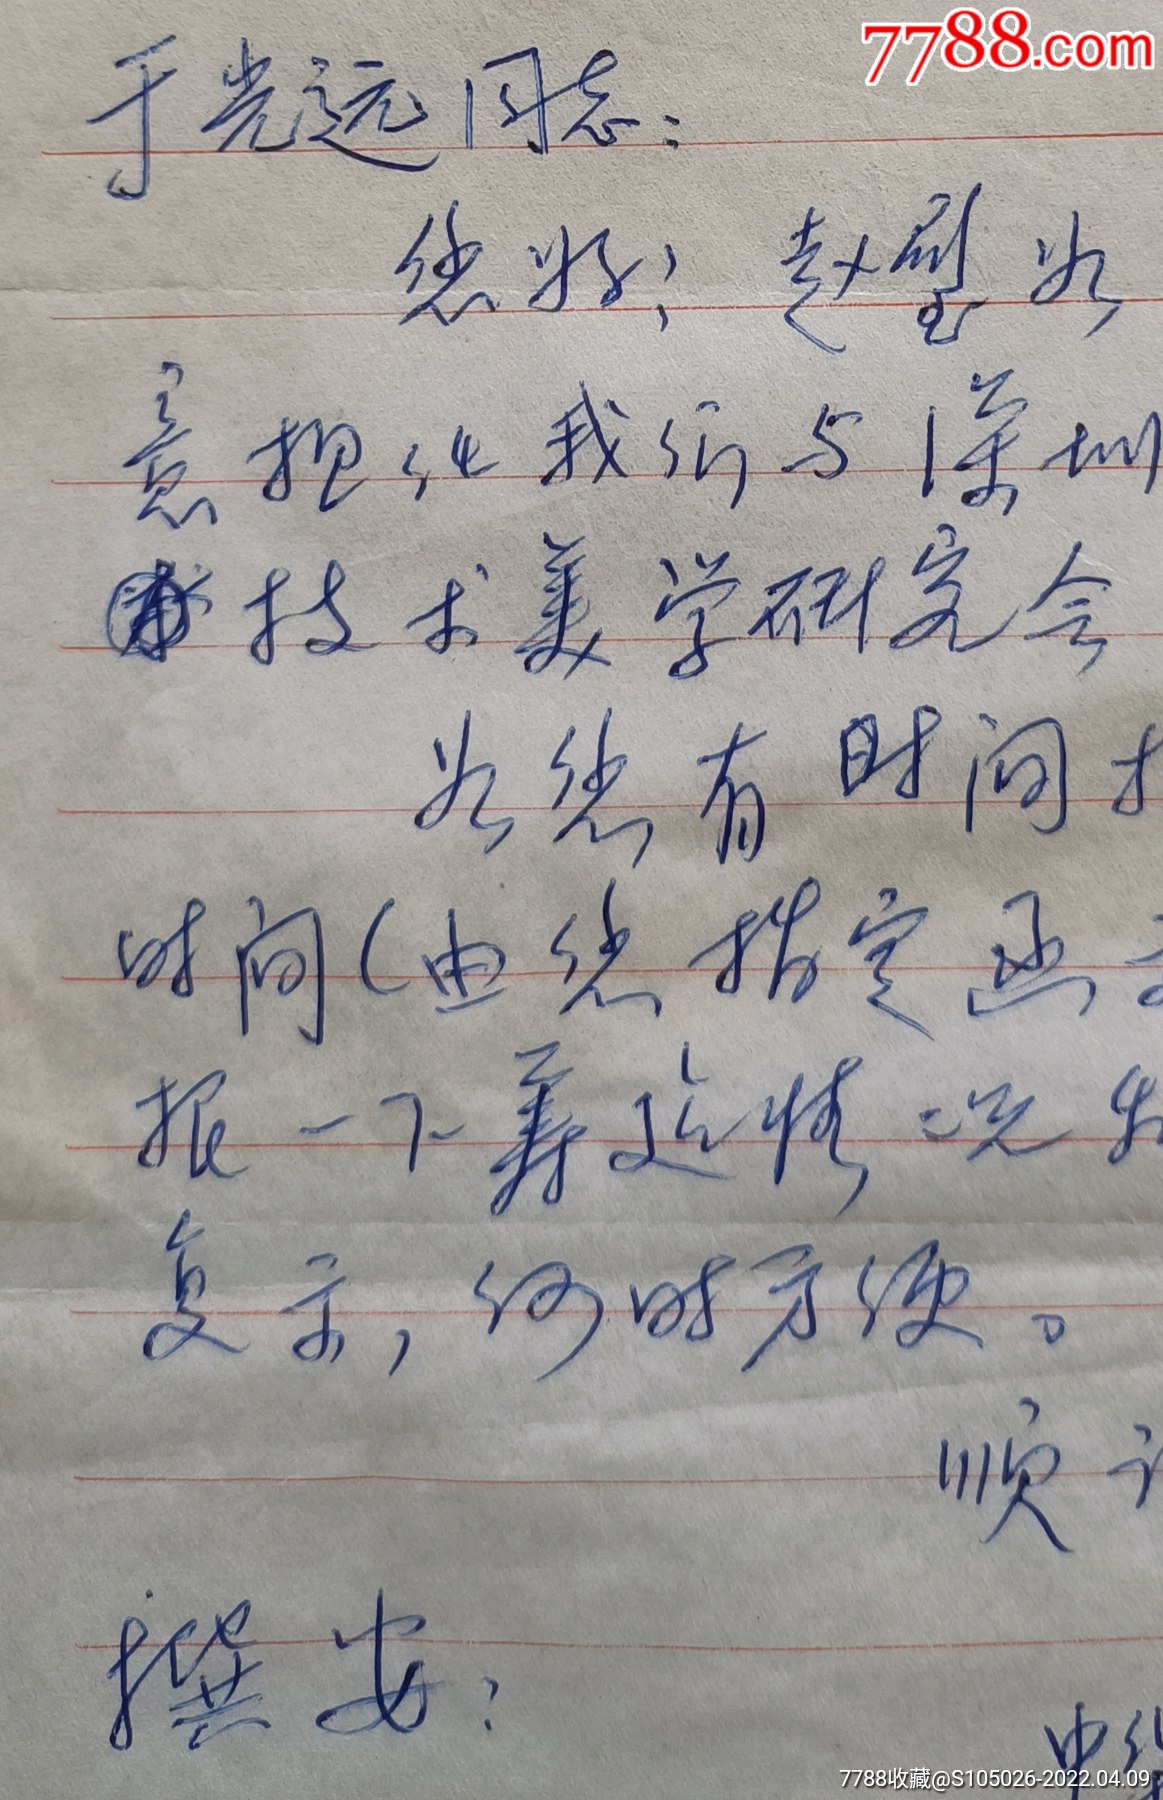 7788.com
于光远同志：
您好！赵璧如
意担任我们与深圳
技术美学研究会
如您有时间
时间（由您指定函
报一下筹边情况
复示，何时方便。
顺
撰安！
中华
7788收藏@S105026-2022.04.09